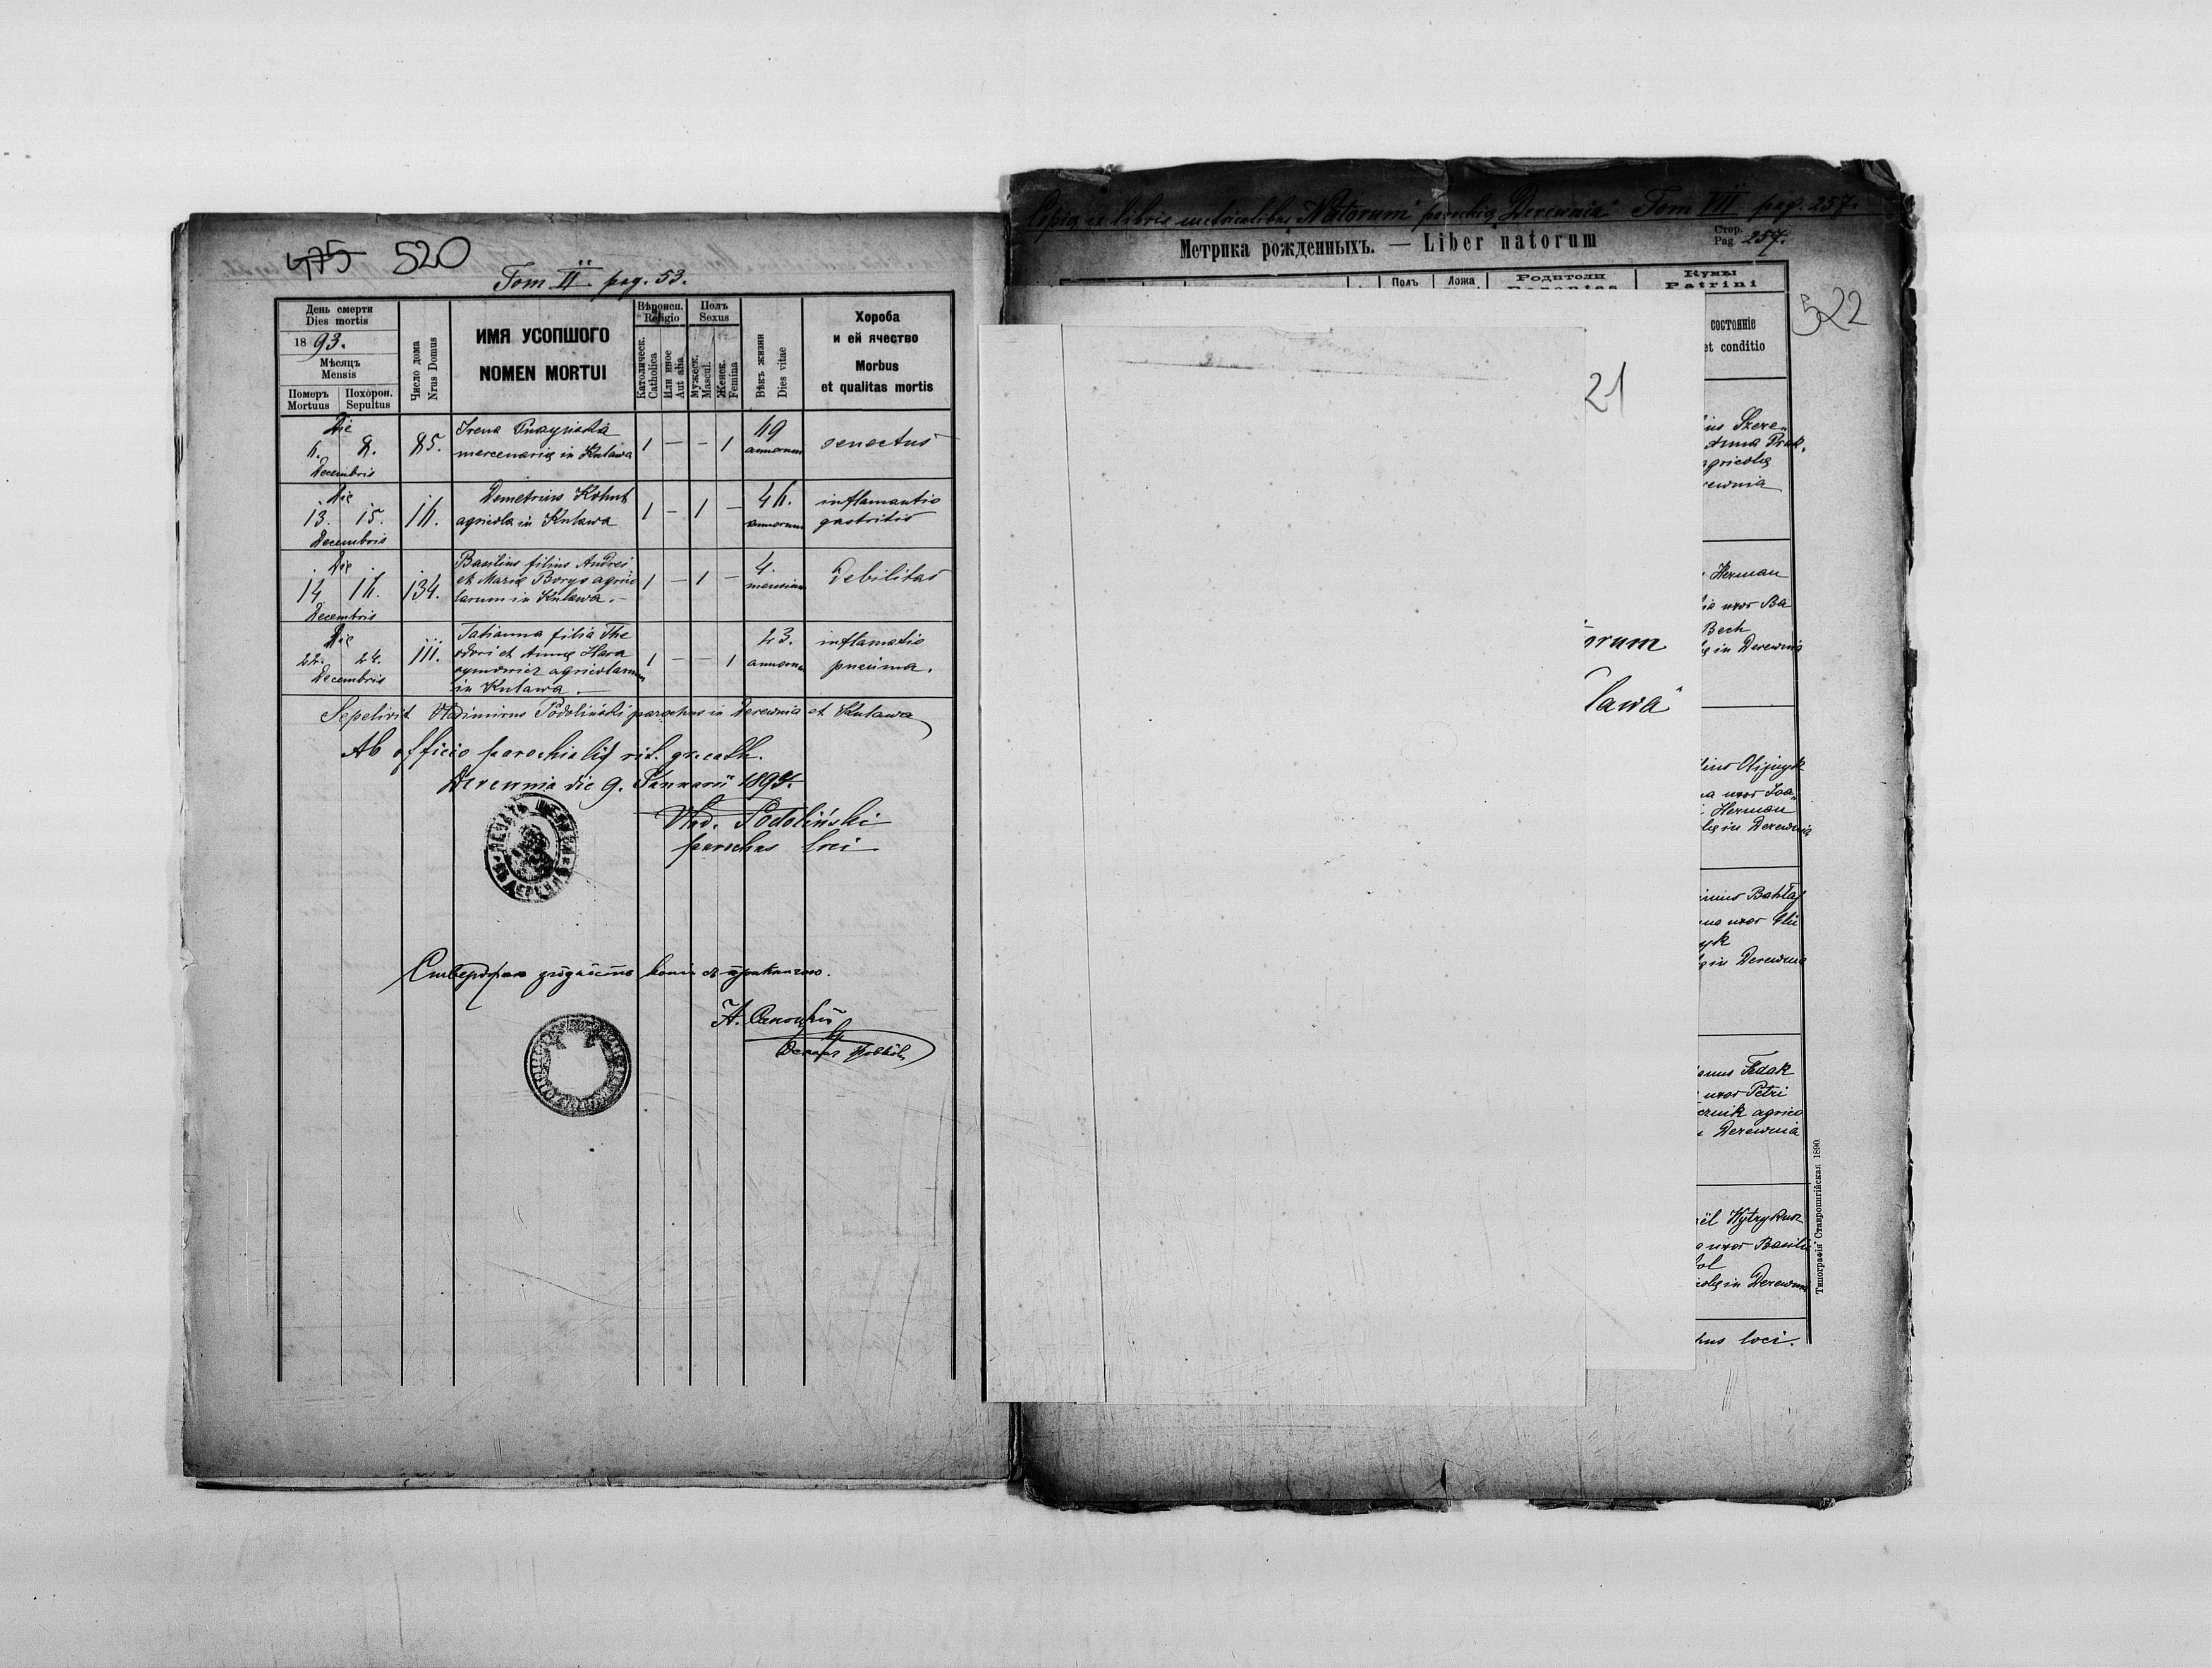 475 520
Tom II pag. 53.
День смерти
Dies mortis
1893.
Мѣсяцъ
Mensis
Померъ
Mortuus
Похорон.
Sepultus
Число дома
Nrus Domus
ИМЯ УСОПШОГО
NOMEN MORTUI
Вѣроисп.
Religio
Католическ.
Catholica
Или иное
Aut alia
Полъ
Sexus
Мужеск.
Mascul.
Женск.
Femina
Вѣкъ жизни
Dies vitae
Хороба
и ей ячество
Morbus
et qualitas mortis
Die
6. 8.
Decembris
85.
Irena
mercenaria in Kulawa
1 — — 1
annorum
senectus
Die
13. 15.
Decembris
16.
Demetrius Kohut
agricola in Kulawa
1 — 1 —
46.
annorum
inflamantio
gastritis
Die
14. 16.
Decembris
134.
Basilius filius Andrei
et Mariæ Borys agrico
larum in Kulawa. —
1 — 1 —
4.
mensium
Debilitas
Die
22. 24.
Decembris
111.
Tatianna filia The
odori et Annæ Hara
symowicz agricolarum
in Kulawa. —
1 — — 1
23.
annorum
inflamatio
pneuma.
Sepelivit Vladimirus Podoliński parochus in Derewnia et Kulawa
Ab officio parochiali rit. gr. cath.
Derewnia die 9. Januarii 1894.
Vlad. Podoliński
parochus loci
Стверджаю згôдность копіи зъ
А.
Copia ex libris metricalibus "Natorum" parochiæ "Derewnia" Tom VII pag. 257.
Метрика рожденныхъ. — Liber natorum
Стор.
Pag. 257.
Полъ
Ложа
Родители
Parentes
Кумы
Patrini
состояніе
et conditio
522
21
orum
lawa"
ius Szere„
Anna Prok.
agricolæ
rewnia
Herman
ia uxor Ba
Bech
læ in Derewnia
lius Olijnyk
na uxor Joa„
i Herman
læ in Derewnia
imus Bahłaj
na uxor Eli
yk
læ in Derewnia
anus Fedak
uxor Petri
cznik agrico
n Derewnia
aël Hytryk
a uxor Basilii
ol
icolæ in Derewnia
hus loci.
Типографія Ставропигійская 1890.